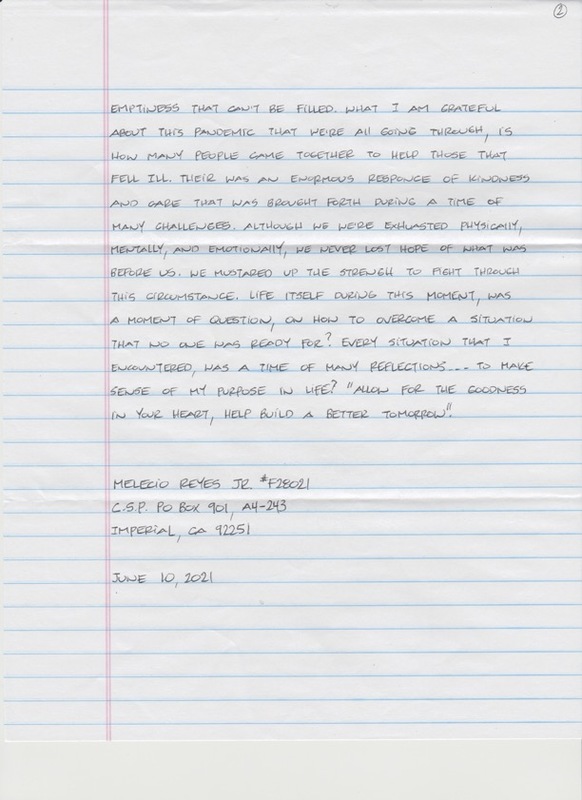 2
EMPTINESS THAT CAN'T BE FILLED. WHAT I AM GRATEFUL
ABOUT THIS PANDEMIC THAT WE'RE All GOING THROUGH, IS
HOW MANY PEOPLE CAME TOGETHER TO HELP THOSE THAT
FELL ILL. THEIR WAS AN ENORMOUS RESPONCE OF KINDNESS
AND CARE THAT WAS BROUGHT FORTH DURING A TIME OF
MANY CHALLENGES. ALTHOUGH WE WE'RE EXHUASTED PHYSICALLY,
MENTALLY, AND EMOTIONALLY, WE NEVER LOST HOPE OF WHAT WAS
BEFORE US. WE MUSTARED UP THE STRENGTH TO FIGHT THROUGH
THIS CIRCUMSTANCE. LIFE ITSELF DURING THIS MOMENT, WAS
A MOMENT OF QUESTION, ON HOW TO OVERCOME A SITUATION
THAT NO ONE WAS READY FOR? EVERY SITUATION THAT I
ENCOUNTERED, WAS A TIME OF MANY REFLECTIONS... TO MAKE
SENSE OF MY PURPOSE IN LIFE? "ALLOW FOR THE GOODNESS
IN YOUR HEART, HELP BUILD A BETTER TOMORROW".
MELECIO REYES JR. #F28021
C.S.P. PO BOX 901, A4-243
IMPERIAL, CA 92251
JUNE 10, 2021